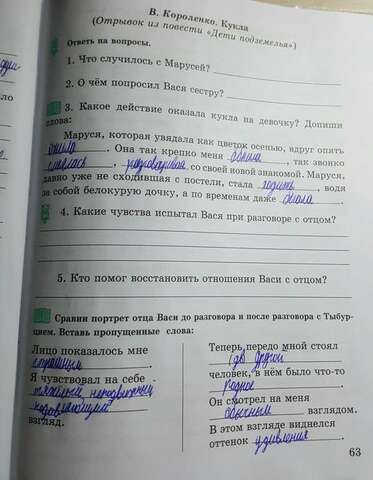 В. Короленко. Кукла
(Отрывок из повести «Дети подземелья»)
Ответь на вопросы.
1. Что случилось с Марусей?
2. О чём попросил Вася сестру?
3. Какое действие оказала кукла на девочку? Допиши
слова:
Маруся, которая увядала как цветок осенью, вдруг опять
ожила. Она так крепко меня обняла, так звонко
смеялась, разговаривая со своей новой знакомой. Маруся,
давно уже не сходившая с постели, стала ходить, водя
за собой белокурую дочку, а по временам даже бегала.
4. Какие чувства испытал Вася при разговоре с отцом?
5. Кто помог восстановить отношения Васи с отцом?
Сравни портрет отца Васи до разговора и после разговора с Тыбур-
цием. Вставь пропущенные слова:
Лицо показалось мне
страшным.
Я чувствовал на себе
тяжёлый, неподвижный
подавляющий
взгляд.
Теперь передо мной стоял
другой
человек, в нём было что-то
родное
Он смотрел на меня
обычным взглядом.
В этом взгляде виднелся
оттенок удивления.
63